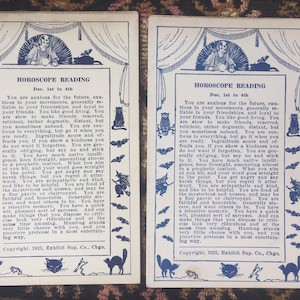 HOROSCOPE READING
Dec. 1st to 4th
You are anxious for the future, cau-
tious in your movements, generally re-
liable in your friendships, and loyal to
your friends. You like good living. You
are slow to make friends, reserved,
reticient, rather dogmatic, distant, but
you sometimes unbend. You are cau-
tious in everything, but go it when you
are ready. Ingratitude sours and of-
fends you, if you show a kindness you
want it reciprocated. You are gen-
obliging, but you say no and stick
to it. You have much native intelli-
gence, keen foresight, amounting almost
to prophetic instinct. What you aim
at you hit, and your word goes straight
to the point. You get angry and say
harsh things, but soon regret it after-
ward. You are sympathetic and kind,
and like to be helpful. You are fond of
the mysterious and queer, and may be
a fine psychic or clairvoyant. You are
faithful and honorable, liberally
and want others to be. You have
a retentive memory. You have a quick
wit, pleasant sort of sarcasm. And can
make things that you dispose to criti-
cise look very ridiculous and at the
same time amusing. Humbug stands
very little chance with you, and you
puncture pretense in a most entertain-
ing way.
Copyright, 1925, Exhibit Sup. Co., Chgo.
HOROSCOPE READING
Dec. 1st to 4th
You are anxious for the future, cau-
tious in your movements, generally re-
liable in your friendships, and loyal to
your friends. You like good living. You
are slow to make friends, reserved,
reticient, rather dogmatic, distant, but
you sometimes unbend. You are cau-
tious in everything, but go it when you
are ready. Ingratitude sours and of-
fends you, if you show a kindness you
want it reciprocated. You are gen-
erally obliging, but say no and stick
to it. You have much native intelli-
gence, keen foresight, amounting almost
to prophetic instinct. What you aim
at you hit, and your word goes straight
to the point. You get angry and say
harsh things, but soon regret it after-
ward. You are sympathetic and kind,
and like to be helpful. You are fond of
the mysterious and queer, and may be
a fine psychic or clairvoyant. You are
faithful and honorable, liberally
and want others to be. You have
a retentive memory. You have a quick
wit, pleasant sort of sarcasm. And can
make things that you dispose to criti-
cise look very ridiculous and at the
same time amusing. Humbug stands
very little chance with you, and you
puncture pretense in a most entertain-
ing way.
Copyright, 1925, Exhibit Sup. Co., Chgo.